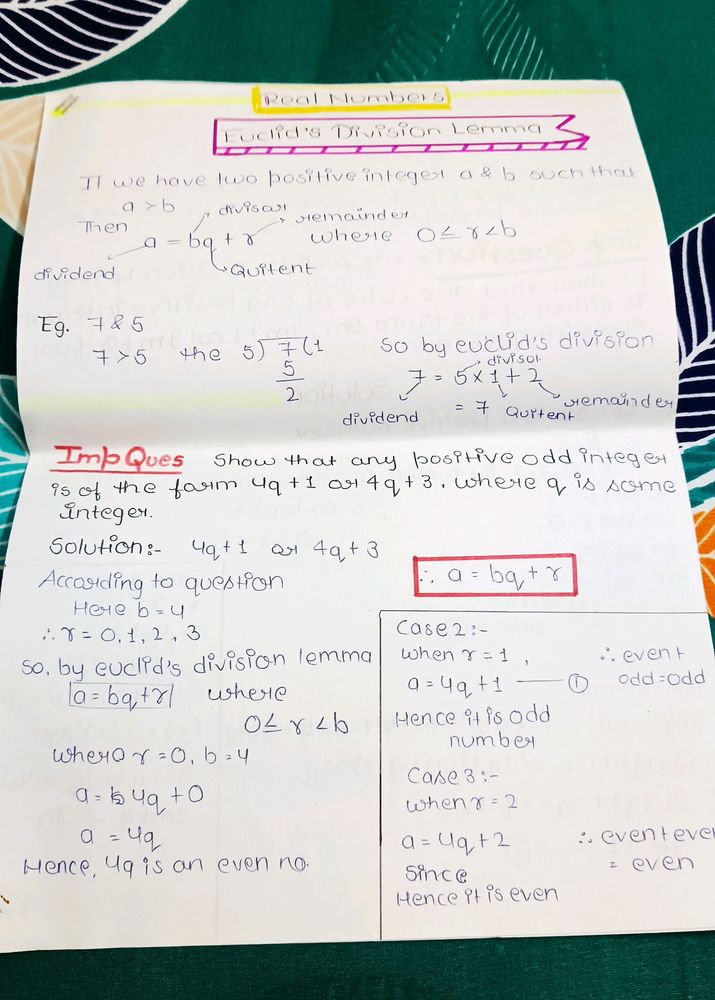 Real Numbers
Euclid's Division Lemma
If we have two positive integer a & b such that
a > b
Then
divisor
remainder
a = bq + r where 0 ≤ r < b
dividend
Quitent
Eg. 7 & 5
7 > 5 the 5) 7 (1
5
2
So by euclid's division
divisor
7 = 5 x 1 + 2
dividend
= 7 Quitent remainder
Imp Ques Show that any positive odd integer
is of the farm 4q + 1 or 4q + 3, where q is some
integer.
Solution:- 4q+1 or 4q+3
According to question
Here b = 4
∴ r = 0, 1, 2, 3
∴ a = bq + r
So, by euclid's division lemma
a = bq + r where
0 ≤ r < b
when r = 0, b = 4
a = 4q + 0
a = 4q
Hence, 4q is an even no.
Case 2:-
when r = 1,
∴ event
a = 4q + 1 — ①
odd = odd
Hence it is odd
number
Case 3:-
when r = 2
a = 4q + 2
∴ event even
= even
Since
Hence it is even